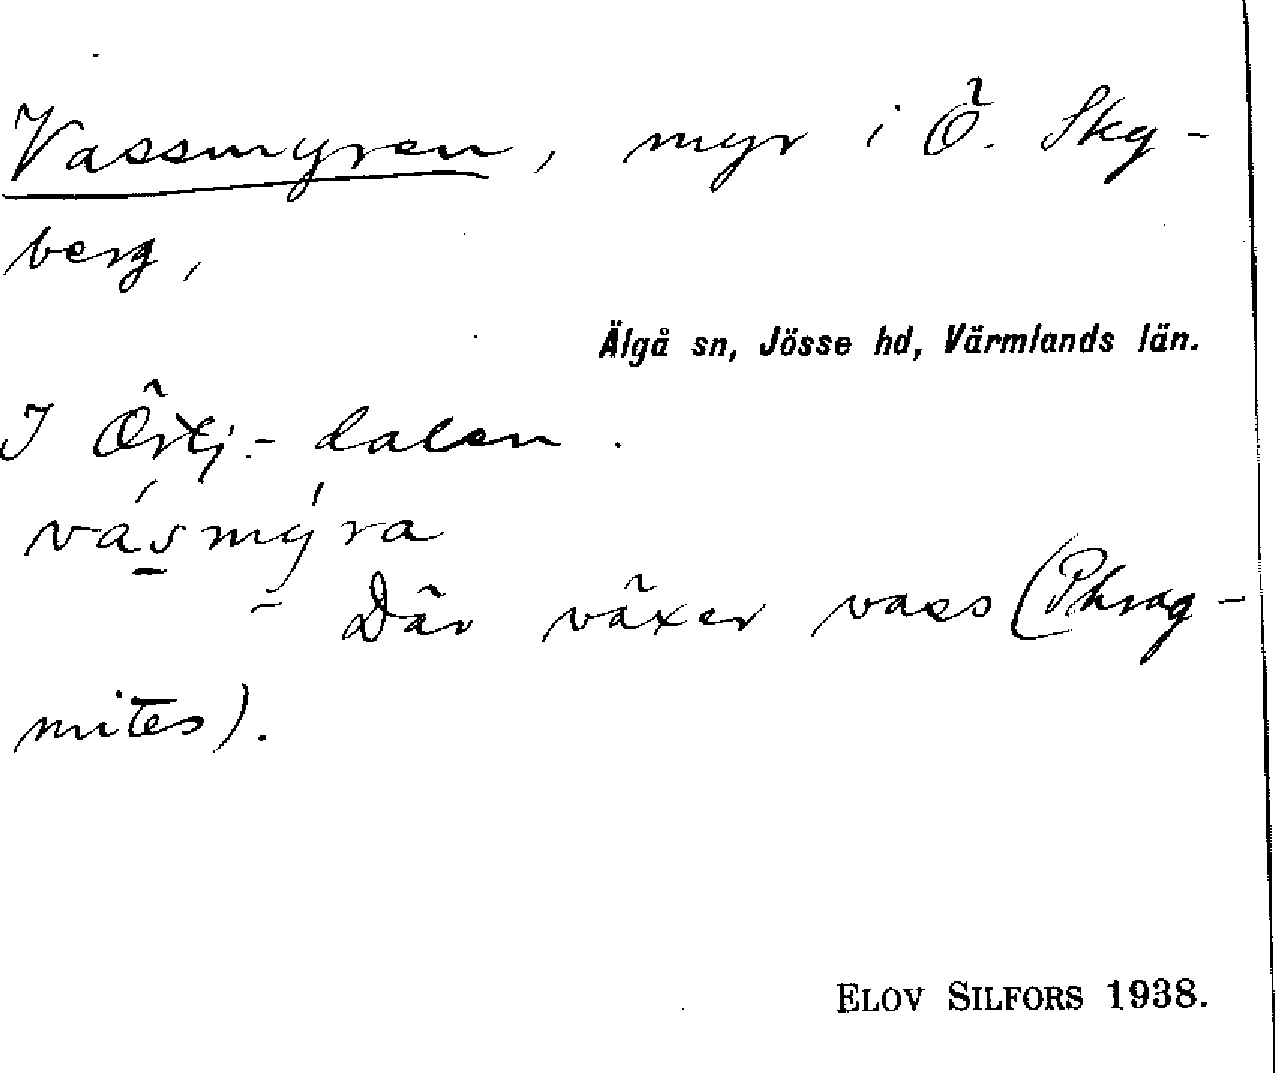 Vassmyren, myr i Ö. Sky-
berg,
Älgå sn, Jösse hd, Värmlands län.
I Örtj.-dalen.
vásmýra
- Där växer vass (Phrag-
mites).
ELOV SILFORS 1938.